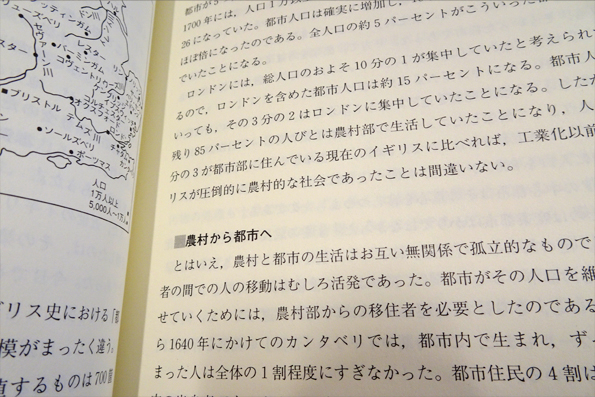 ッティンガム
シューズベリ
レスター
バーミンガム
コヴェントリ
セヴァーン川
ブリストル
テムズ川
ソールズベリ
ポーツマス
人口
1万人以上
5,000人〜1万人
ギリス史における「都
模がまったく違う。
直するものは700個
都市が5
1700年には，人口1万
26になっていた。都市人口は確実に増加し，
ほぼ倍になったのである。全人口の約5パーセントがこういった都
でいたことになる。
ロンドンには，総人口のおよそ10分の1が集中していたと考えられて
るので，ロンドンを含めた都市人口は約15パーセントになる。都市人
いっても，その3分の2はロンドンに集中していたことになる。したが
残り85パーセントの人びとは農村部で生活していたことになり，人
分の3が都市部に住んでいる現在のイギリスに比べれば，工業化以前
リスが圧倒的に農村的な社会であったことは間違いない。
■農村から都市へ
とはいえ，農村と都市の生活はお互い無関係で孤立的なもので
者の間での人の移動はむしろ活発であった。都市がその人口を維
せていくためには，農村部からの移住者を必要としたのである
ら1640年にかけてのカンタベリでは，都市内で生まれ，ず
まった人は全体の1割程度にすぎなかった。都市住民の4割は